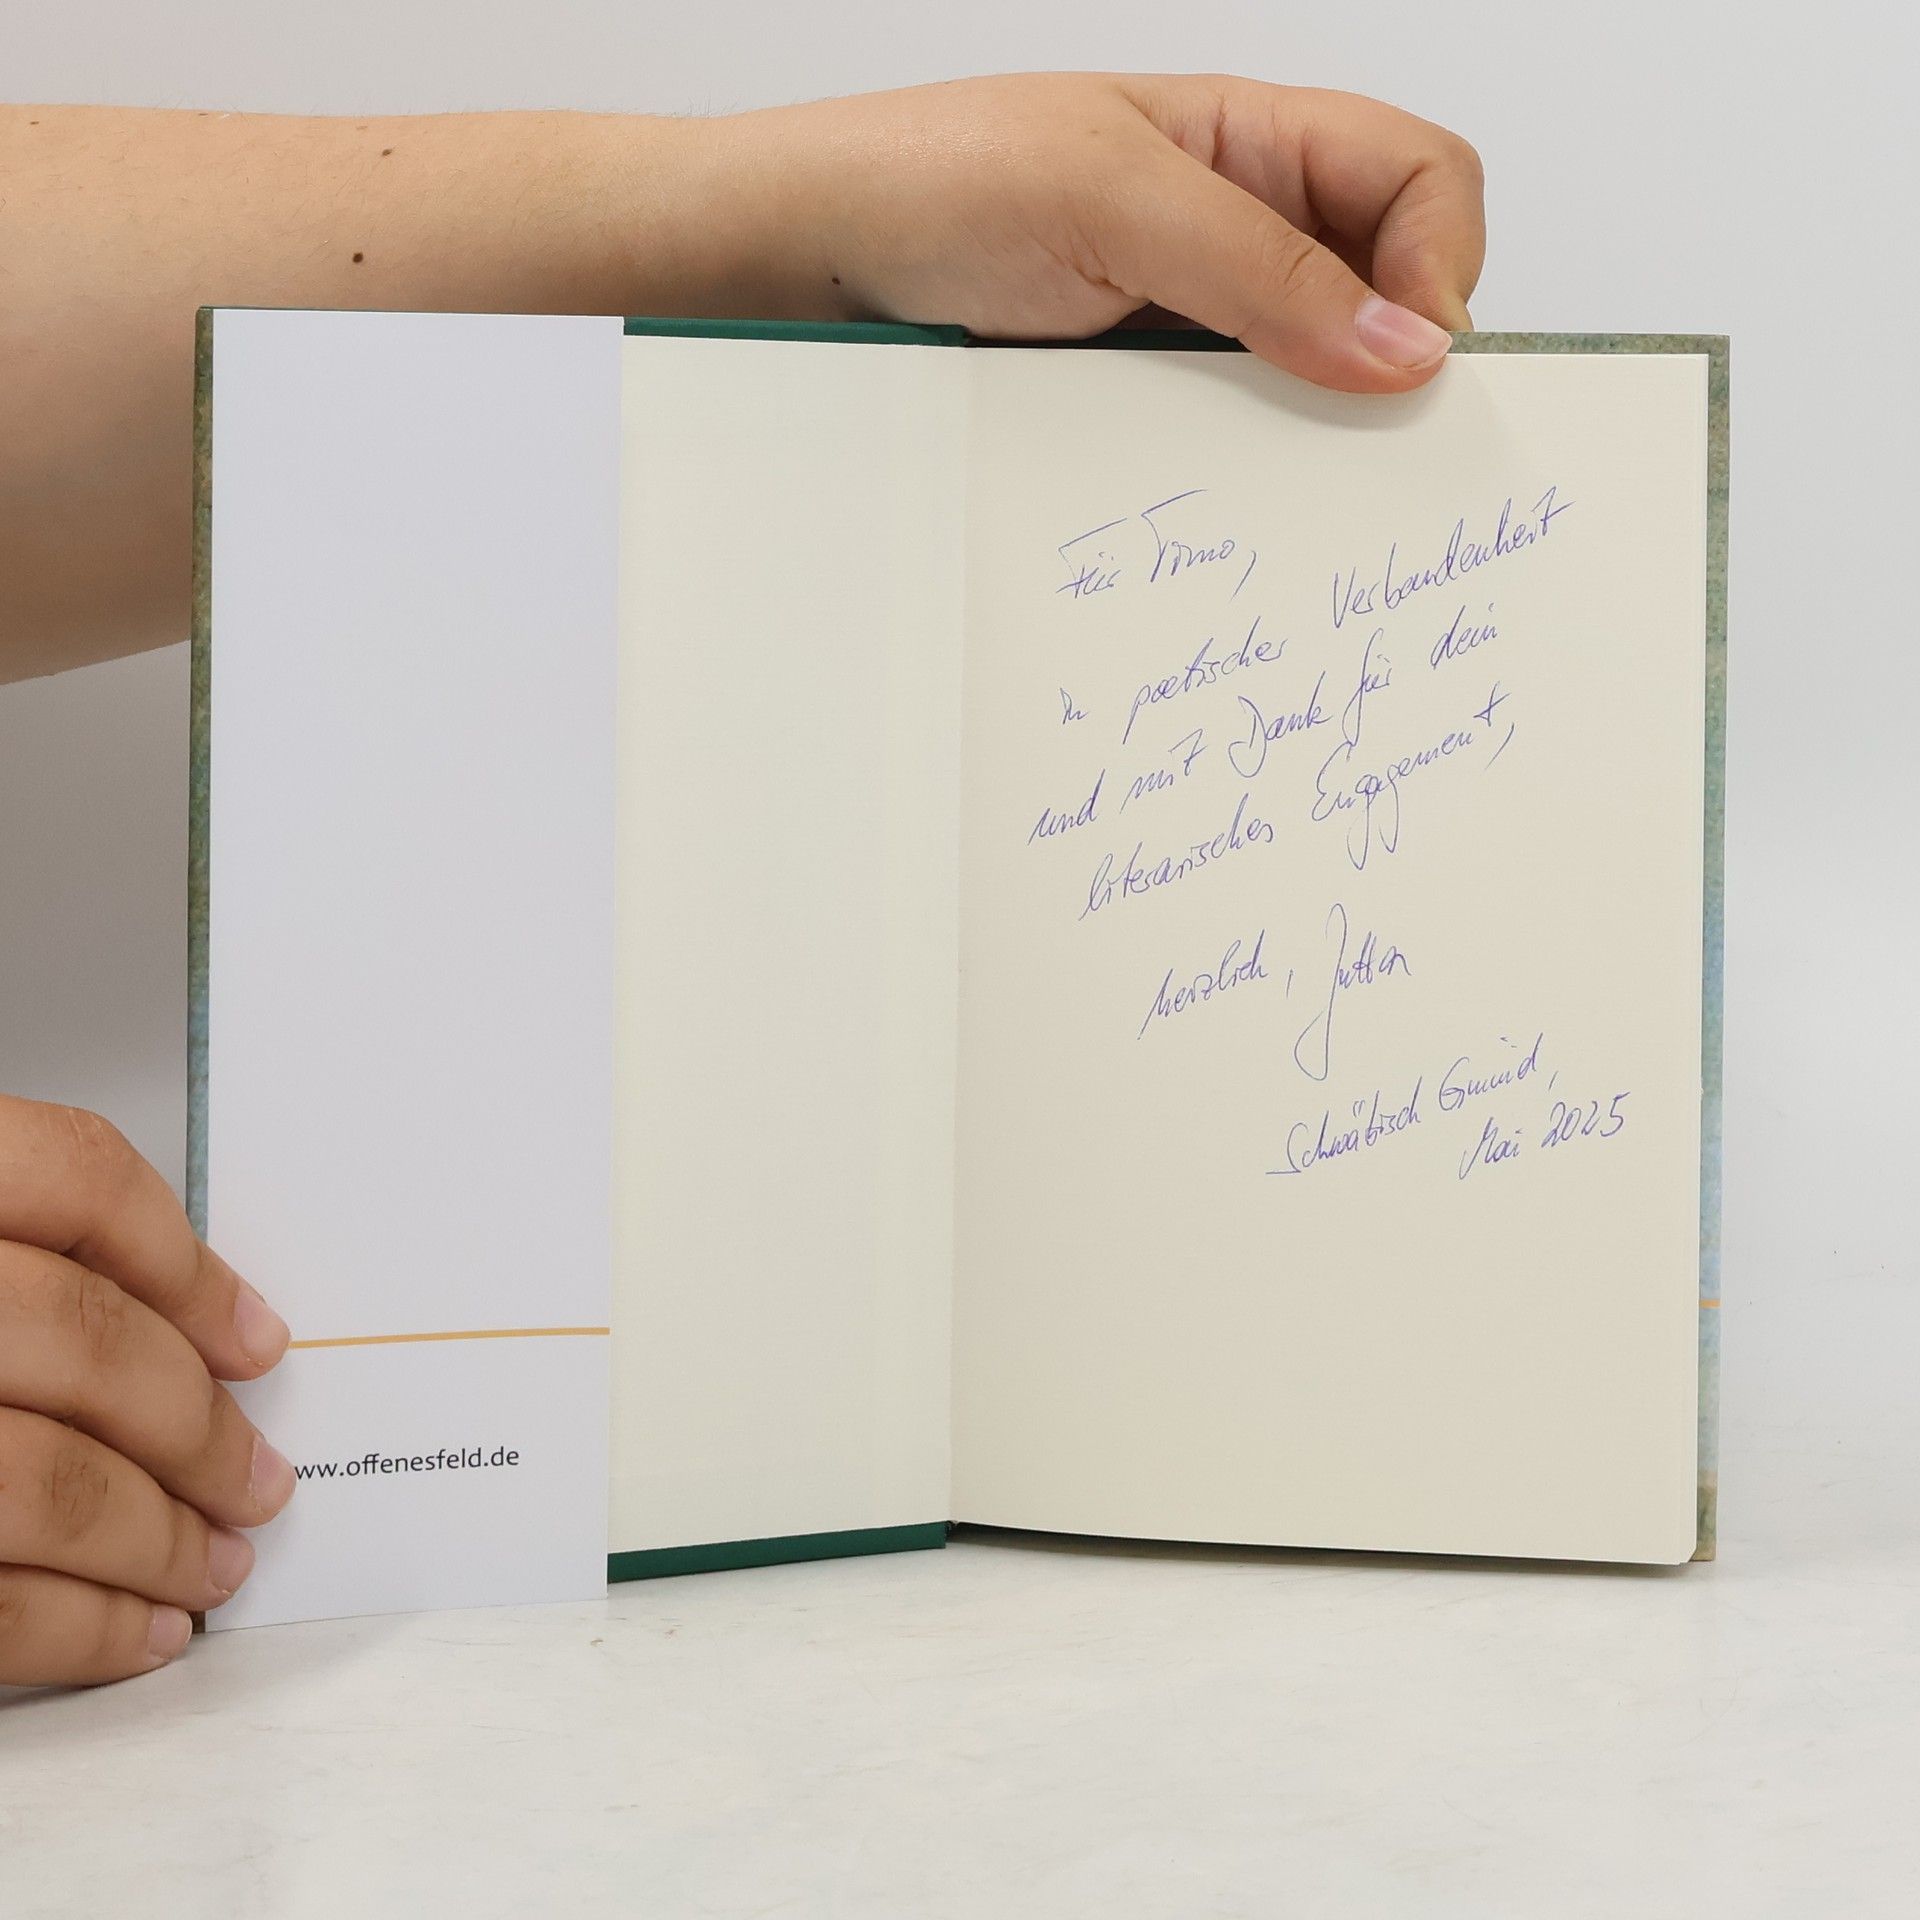 ww.offenesfeld.de
Für Timo,
in poetischer Verbundenheit
und mit Dank für dein
literarisches Engagement,
herzlich, Jutta
Schwäbisch Gmünd,
Mai 2025